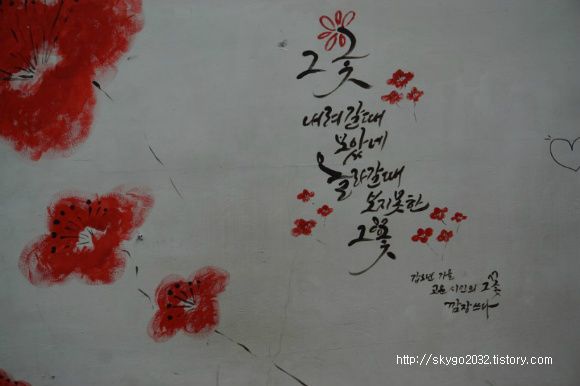 그 꽃
내려갈때
보았네
올라갈때
보지못한
그 꽃
고은 시인의 그 꽃
http://skygo2032.tistory.com